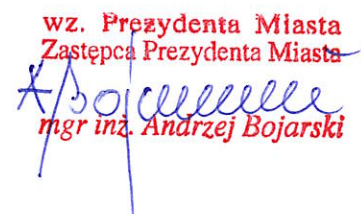 wz. Prezydenta Miasta
Zastępca Prezydenta Miasta
A. Bojarski
mgr inż. Andrzej Bojarski